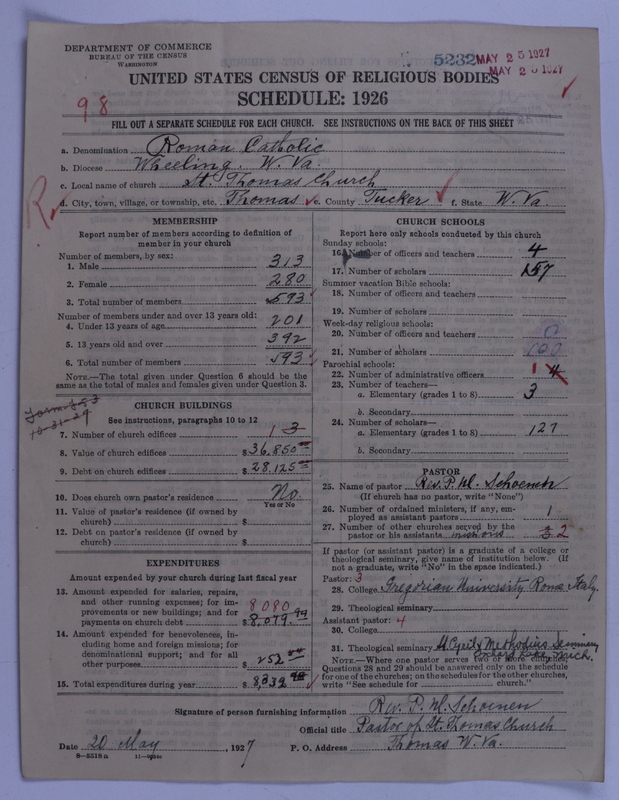 DEPARTMENT OF COMMERCE
BUREAU OF THE CENSUS
WASHINGTON
5232 MAY 25 1927
MAY 25 1927
UNITED STATES CENSUS OF RELIGIOUS BODIES
SCHEDULE: 1926
98
FILL OUT A SEPARATE SCHEDULE FOR EACH CHURCH. SEE INSTRUCTIONS ON THE BACK OF THIS SHEET
a. Denomination Roman Catholic
b. Diocese Wheeling. W. Va.
c. Local name of church St. Thomas Church
R
d. City, town, village, or township, etc. Thomas e. County Tucker f. State W. Va.
MEMBERSHIP
Report number of members according to definition of
member in your church
Number of members, by sex:
1. Male 313
2. Female 280
3. Total number of members 593
Number of members under and over 13 years old:
4. Under 13 years of age 201
5. 13 years old and over 392
6. Total number of members 593
NOTE.—The total given under Question 6 should be the
same as the total of males and females given under Question 3.
10-31-29
CHURCH BUILDINGS
See instructions, paragraphs 10 to 12
7. Number of church edifices 1 3
8. Value of church edifices $ 36,850.00
9. Debt on church edifices $ 28,125.00
10. Does church own pastor's residence No.
Yes or No
11. Value of pastor's residence (if owned by
church) $
12. Debt on pastor's residence (if owned by
church) $
EXPENDITURES
Amount expended by your church during last fiscal year
13. Amount expended for salaries, repairs,
and other running expenses; for im-
provements or new buildings; and for
payments on church debt 8080 $ 8,079.99
14. Amount expended for benevolences, in-
cluding home and foreign missions; for
denominational support; and for all
other purposes $ 252
15. Total expenditures during year $ 8,332
CHURCH SCHOOLS
Report here only schools conducted by this church
Sunday schools:
16. Number of officers and teachers 4
17. Number of scholars 157
Summer vacation Bible schools:
18. Number of officers and teachers
19. Number of scholars
Week-day religious schools:
20. Number of officers and teachers
21. Number of scholars 100
Parochial schools:
22. Number of administrative officers 1
23. Number of teachers—
a. Elementary (grades 1 to 8) 3
b. Secondary
24. Number of scholars—
a. Elementary (grades 1 to 8) 127
b. Secondary
PASTOR
25. Name of pastor Rev. P. W. Schoenen
(If church has no pastor, write "None")
26. Number of ordained ministers, if any, em-
ployed as assistant pastors 1
27. Number of other churches served by the
pastor or his assistants missions 3 2
If pastor (or assistant pastor) is a graduate of a college or
theological seminary, give name of institution below. (If
not a graduate, write "No" in the space indicated.)
Pastor: 3
28. College Gregorian University Rome Italy.
29. Theological seminary
Assistant pastor: 4
30. College
31. Theological seminary St Cyril & Methodius Seminary
Orchard Lake, Mich.
NOTE.—Where one pastor serves two or more churches,
Questions 28 and 29 should be answered only on the schedule
for one of the churches; on the schedules for the other churches,
write "See schedule for church."
Signature of person furnishing information Rev. P. W. Schoenen
Official title Pastor of St. Thomas Church
Date 20 May, 1927 P. O. Address Thomas W. Va.
8—5518a